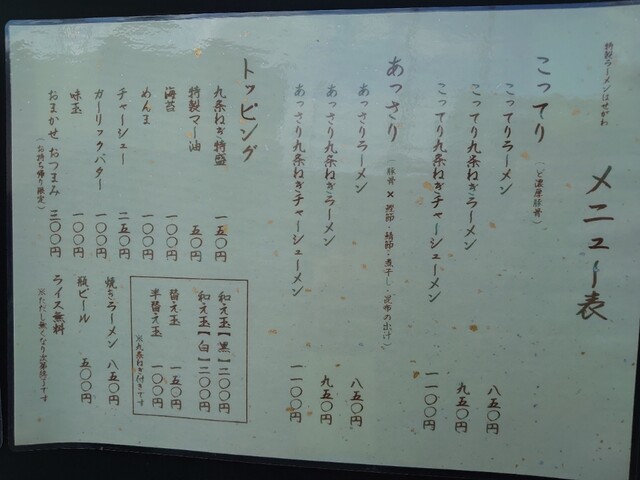 特製ラーメンはせがわ
メニュー表
こってり
(ど濃厚豚骨)
こってりラーメン 八五〇円
こってり九条ねぎラーメン 九五〇円
こってり九条ねぎチャーシューメン 一一〇〇円
あっさり
(豚骨×鰹節・鯖節・煮干し・昆布の出汁)
あっさりラーメン 八五〇円
あっさり九条ねぎラーメン 九五〇円
あっさり九条ねぎチャーシューメン 一一〇〇円
トッピング
九条ねぎ特盛 一五〇円
特製マー油 五〇円
海苔 一〇〇円
めんま 一〇〇円
チャーシュー 二五〇円
ガーリックバター 一〇〇円
味玉 一〇〇円
おまかせ おつまみ 三〇〇円
(お持ち帰り限定)
和え玉【黒】二〇〇円
和え玉【白】二〇〇円
替え玉 一五〇円
半替え玉 一〇〇円
※九条ねぎ付きです
焼きラーメン 八五〇円
瓶ビール 五〇〇円
ライス無料
※ただし無くなり次第終了です